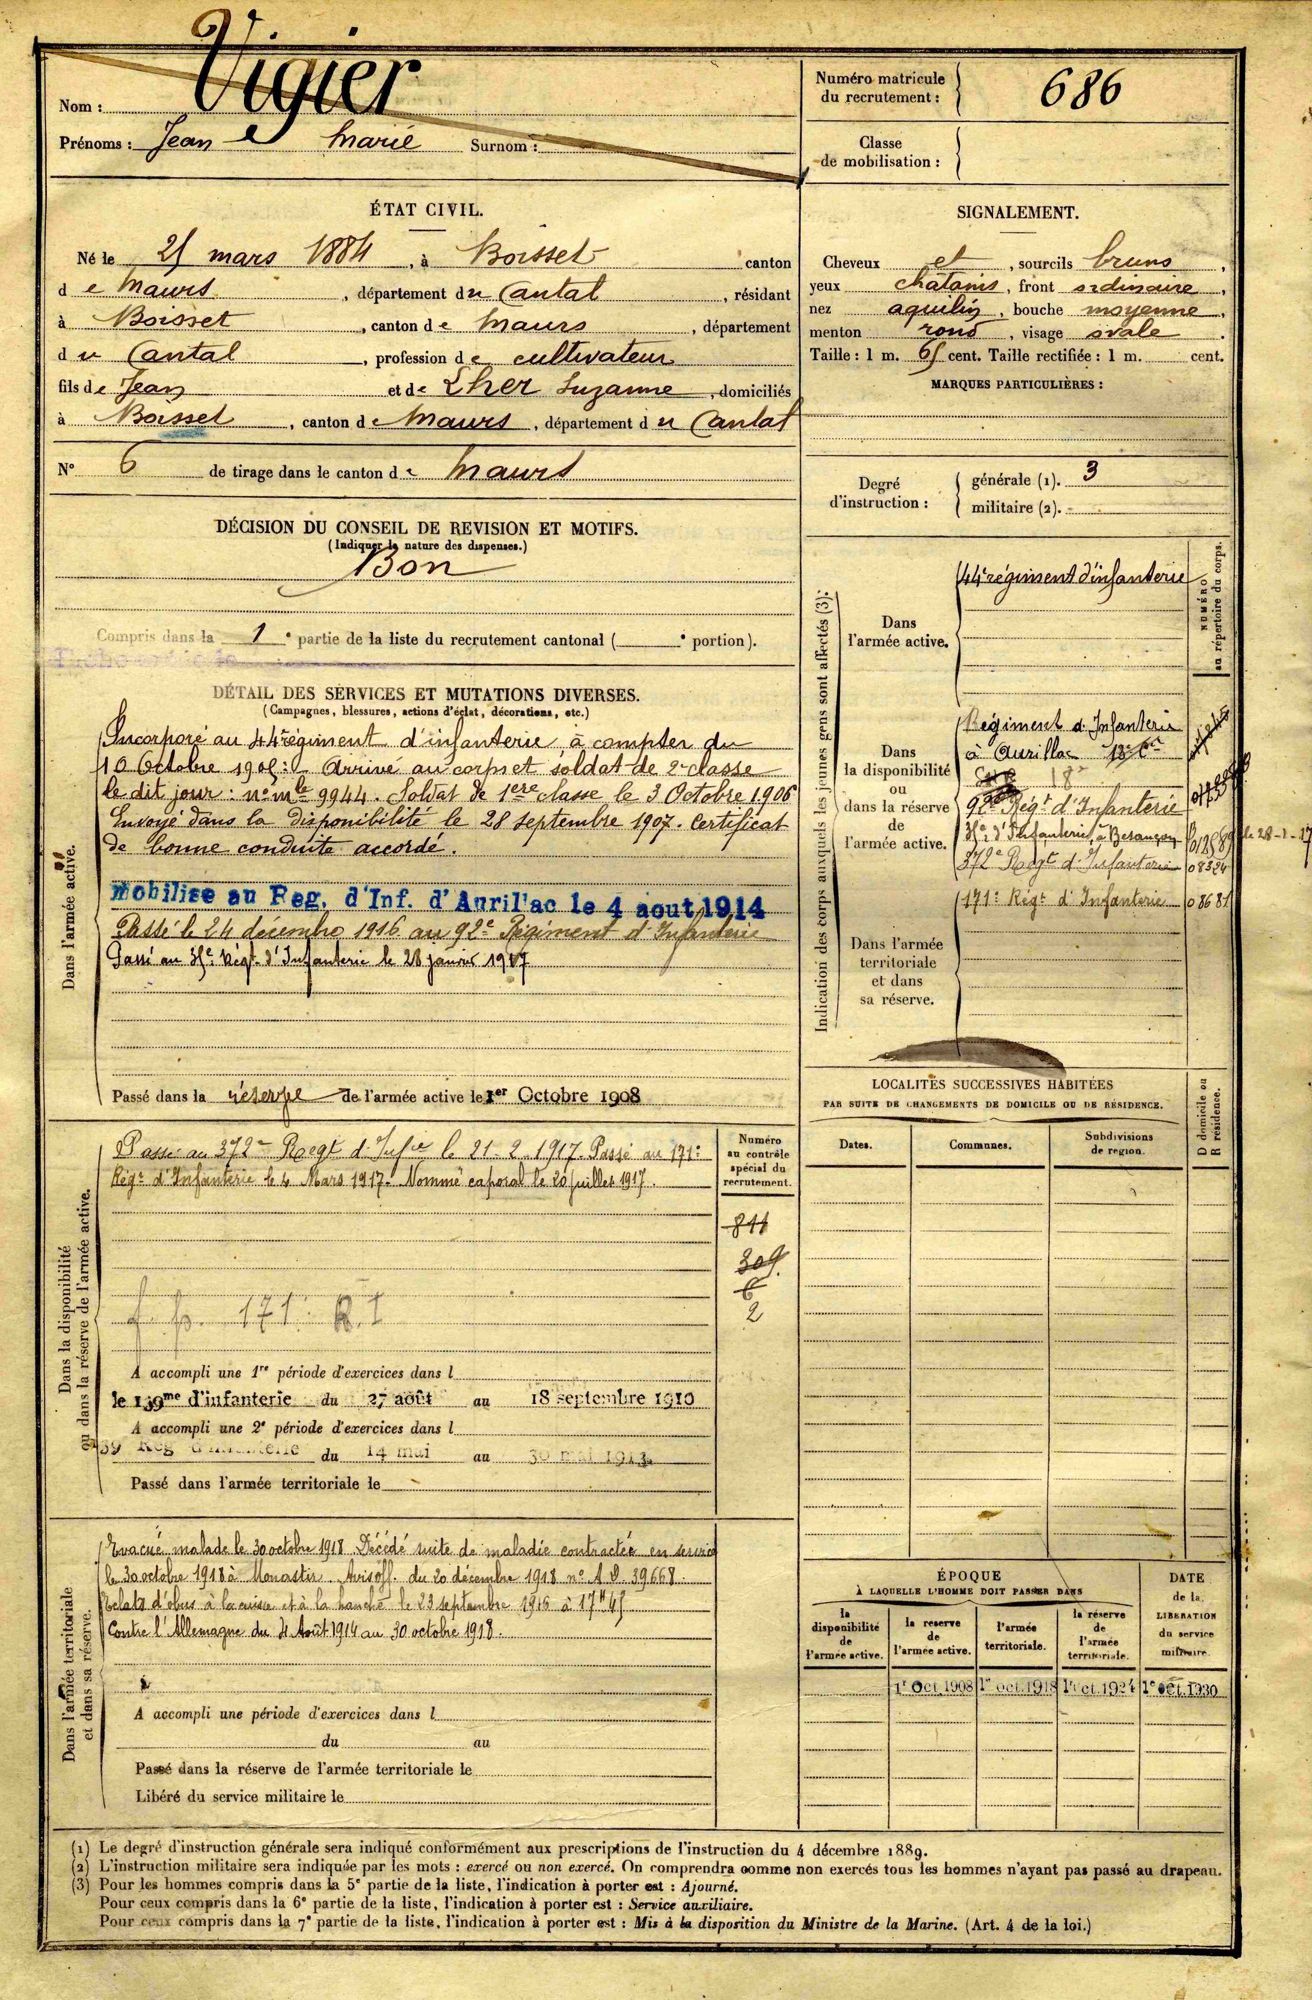 Nom : Vigier
Prénoms : Jean Marie Surnom :
Numéro matricule du recrutement : 686
Classe de mobilisation :
ÉTAT CIVIL.
Né le 25 mars 1884, à Boisset canton
de Maurs, département du Cantal, résidant
à Boisset, canton de Maurs, département
du Cantal, profession de cultivateur
fils de Jean et de Lher Suzanne, domiciliés
à Boisset, canton de Maurs, département du Cantal
N° 6 de tirage dans le canton de Maurs
SIGNALEMENT.
Cheveux et, sourcils bruns,
yeux chatains, front ordinaire,
nez aquilin, bouche moyenne,
menton rond, visage ovale.
Taille : 1 m. 65 cent. Taille rectifiée : 1 m. cent.
MARQUES PARTICULIÈRES :
Degré d'instruction :
générale (1). 3
militaire (2). -
DÉCISION DU CONSEIL DE REVISION ET MOTIFS.
(Indiquer la nature des dispenses.)
Bon
Compris dans la 1e partie de la liste du recrutement cantonal ( e portion).
DÉTAIL DES SERVICES ET MUTATIONS DIVERSES.
(Campagnes, blessures, actions d'éclat, décorations, etc.)
Dans l'armée active.
Incorporé au 44e régiment d'infanterie à compter du
10 Octobre 1905: Arrivé au corps et soldat de 2e classe
le dit jour : n° mle 9944. Soldat de 1ere classe le 3 Octobre 1906
Envoyé dans la disponibilité le 28 septembre 1907. Certificat
de bonne conduite accordé.
Mobilise au Reg. d'Inf. d'Aurillac le 4 aout 1914
Passé le 24 décembre 1916 au 92e Régiment d'Infanterie
Passé au 35e Régt d'Infanterie le 28 janvier 1917
Passé dans la réserve de l'armée active le 1er Octobre 1908
Indication des corps auxquels les jeunes gens sont affectés (3):
NUMÉRO au répertoire du corps.
Dans l'armée active.
44e régiment d'infanterie
Dans la disponibilité ou dans la réserve de l'armée active.
Régiment d'Infanterie
à Aurillac
18e
92e Regt d'Infanterie
35e d'Infanterie à Besançon 012589 le 28-1-17
372e Regt d'Infanterie 08324
171e Régt d'Infanterie 08681
Dans l'armée territoriale et dans sa réserve.
LOCALITÉS SUCCESSIVES HABITÉES
PAR SUITE DE CHANGEMENTS DE DOMICILE OU DE RÉSIDENCE.
Dates. Communes. Subdivisions de region. D domicile ou R résidence.
Dans la disponibilité ou dans la réserve de l'armée active.
Passé au 372e Regt d'Infie le 21-2-1917. Passé au 171e
Régt d'Infanterie le 4 Mars 1917. Nommé caporal le 20 juillet 1917.
Numéro au contrôle spécial du recrutement.
811
309
6
2
f. p. 171e R.I
A accompli une 1re période d'exercices dans l
le 139me d'infanterie du 27 août au 18 septembre 1910
A accompli une 2e période d'exercices dans l
139 Reg d'Infanterie du 14 mai au 30 mai 1913
Passé dans l'armée territoriale le
Dans l'armée territoriale et dans sa réserve.
Evacué malade le 30 octobre 1918 Décédé suite de maladie contractée en service
le 30 octobre 1918 à Monastir. Avis off. du 20 decembre 1918 n° A D 39668.
Eclats d'obus à la cuisse et à la hanche le 23 septembre 1916 à 17H45
Contre l'Allemagne du 4 Août 1914 au 30 octobre 1918.
A accompli une période d'exercices dans l
du au
Passé dans la réserve de l'armée territoriale le
Libéré du service militaire le
ÉPOQUE
À LAQUELLE L'HOMME DOIT PASSER DANS
la disponibilité de l'armée active.
la reserve de l'armée active.
l'armée territoriale.
la réserve de l'armée territoriale.
DATE de la LIBERATION du service militaire.
1r Oct. 1908 1r oct. 1918 1r oct. 1924 1r oct. 1930
(1) Le degré d'instruction générale sera indiqué conformément aux prescriptions de l'instruction du 4 décembre 1889.
(2) L'instruction militaire sera indiquée par les mots : exercé ou non exercé. On comprendra comme non exercés tous les hommes n'ayant pas passé au drapeau.
(3) Pour les hommes compris dans la 5e partie de la liste, l'indication à porter est : Ajourné.
Pour ceux compris dans la 6e partie de la liste, l'indication à porter est : Service auxiliaire.
Pour ceux compris dans la 7e partie de la liste, l'indication à porter est : Mis à la disposition du Ministre de la Marine. (Art. 4 de la loi.)